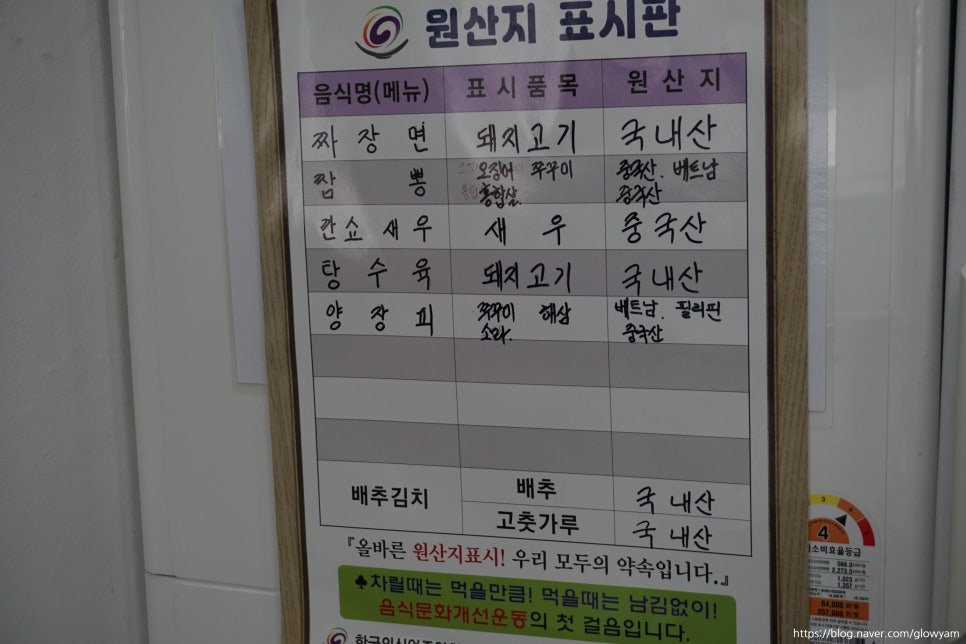 원산지 표시판
음식명(메뉴) 표시품목 원산지
짜장면 돼지고기 국내산
짬뽕 오징어 쭈꾸미 중국산. 베트남
홍합살. 중국산
깐쇼새우 새우 중국산
탕수육 돼지고기 국내산
양장피 쭈꾸미 해삼 베트남. 필리핀
소라. 중국산
배추김치 배추 국내산
고춧가루 국내산
『올바른 원산지표시! 우리 모두의 약속입니다.』
♣차릴때는 먹을만큼! 먹을때는 남김없이!
음식문화개선운동의 첫 걸음입니다.
3
4
5
소비효율등급
https://blog.naver.com/glowyam